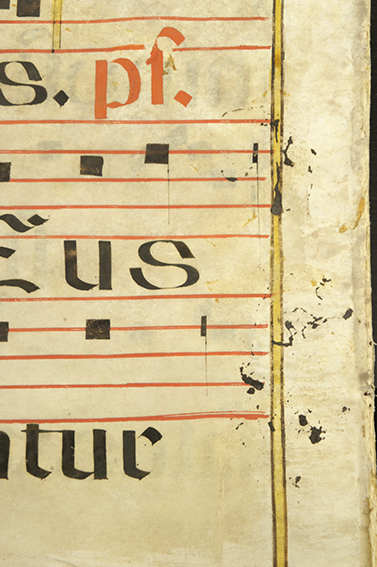 s. pſ.
c̃ us
ntur